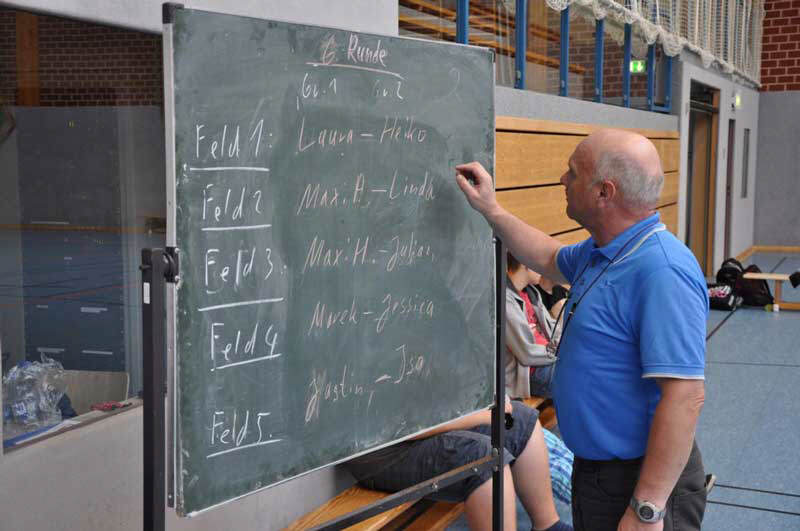 6. Runde
Gr. 1 Gr. 2
Feld 1: Laura - Heiko
Feld 2 Maxi. A. - Linda
Feld 3. Maxi. H. - Julian
Feld 4 Marek - Jessica
Feld 5. Justin - Isa